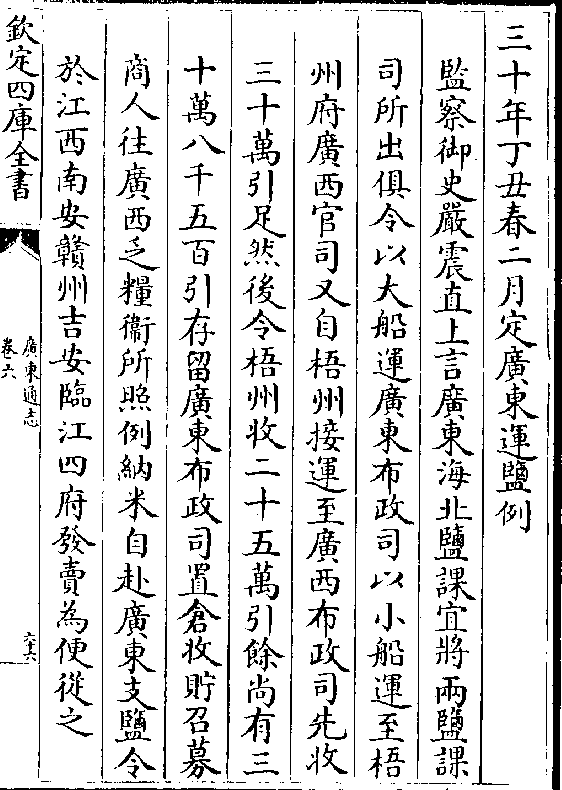 三十年丁丑春二月定廣東運鹽例
監察御史嚴震直上言廣東海北鹽課宜將兩鹽課
司所出俱令以大船運廣東布政司以小船運至梧
州府廣西官司又自梧州接運至廣西布政司先收
三十萬引足然後令梧州收二十五萬引餘尚有三
十萬八千五百引存留廣東布政司置倉收貯召募
商人往廣西乏糧衞所照例納米自赴廣東支鹽令
於江西南安贛州吉安臨江四府發賣為便從之
欽定四庫全書
廣東通志
卷六
六十六